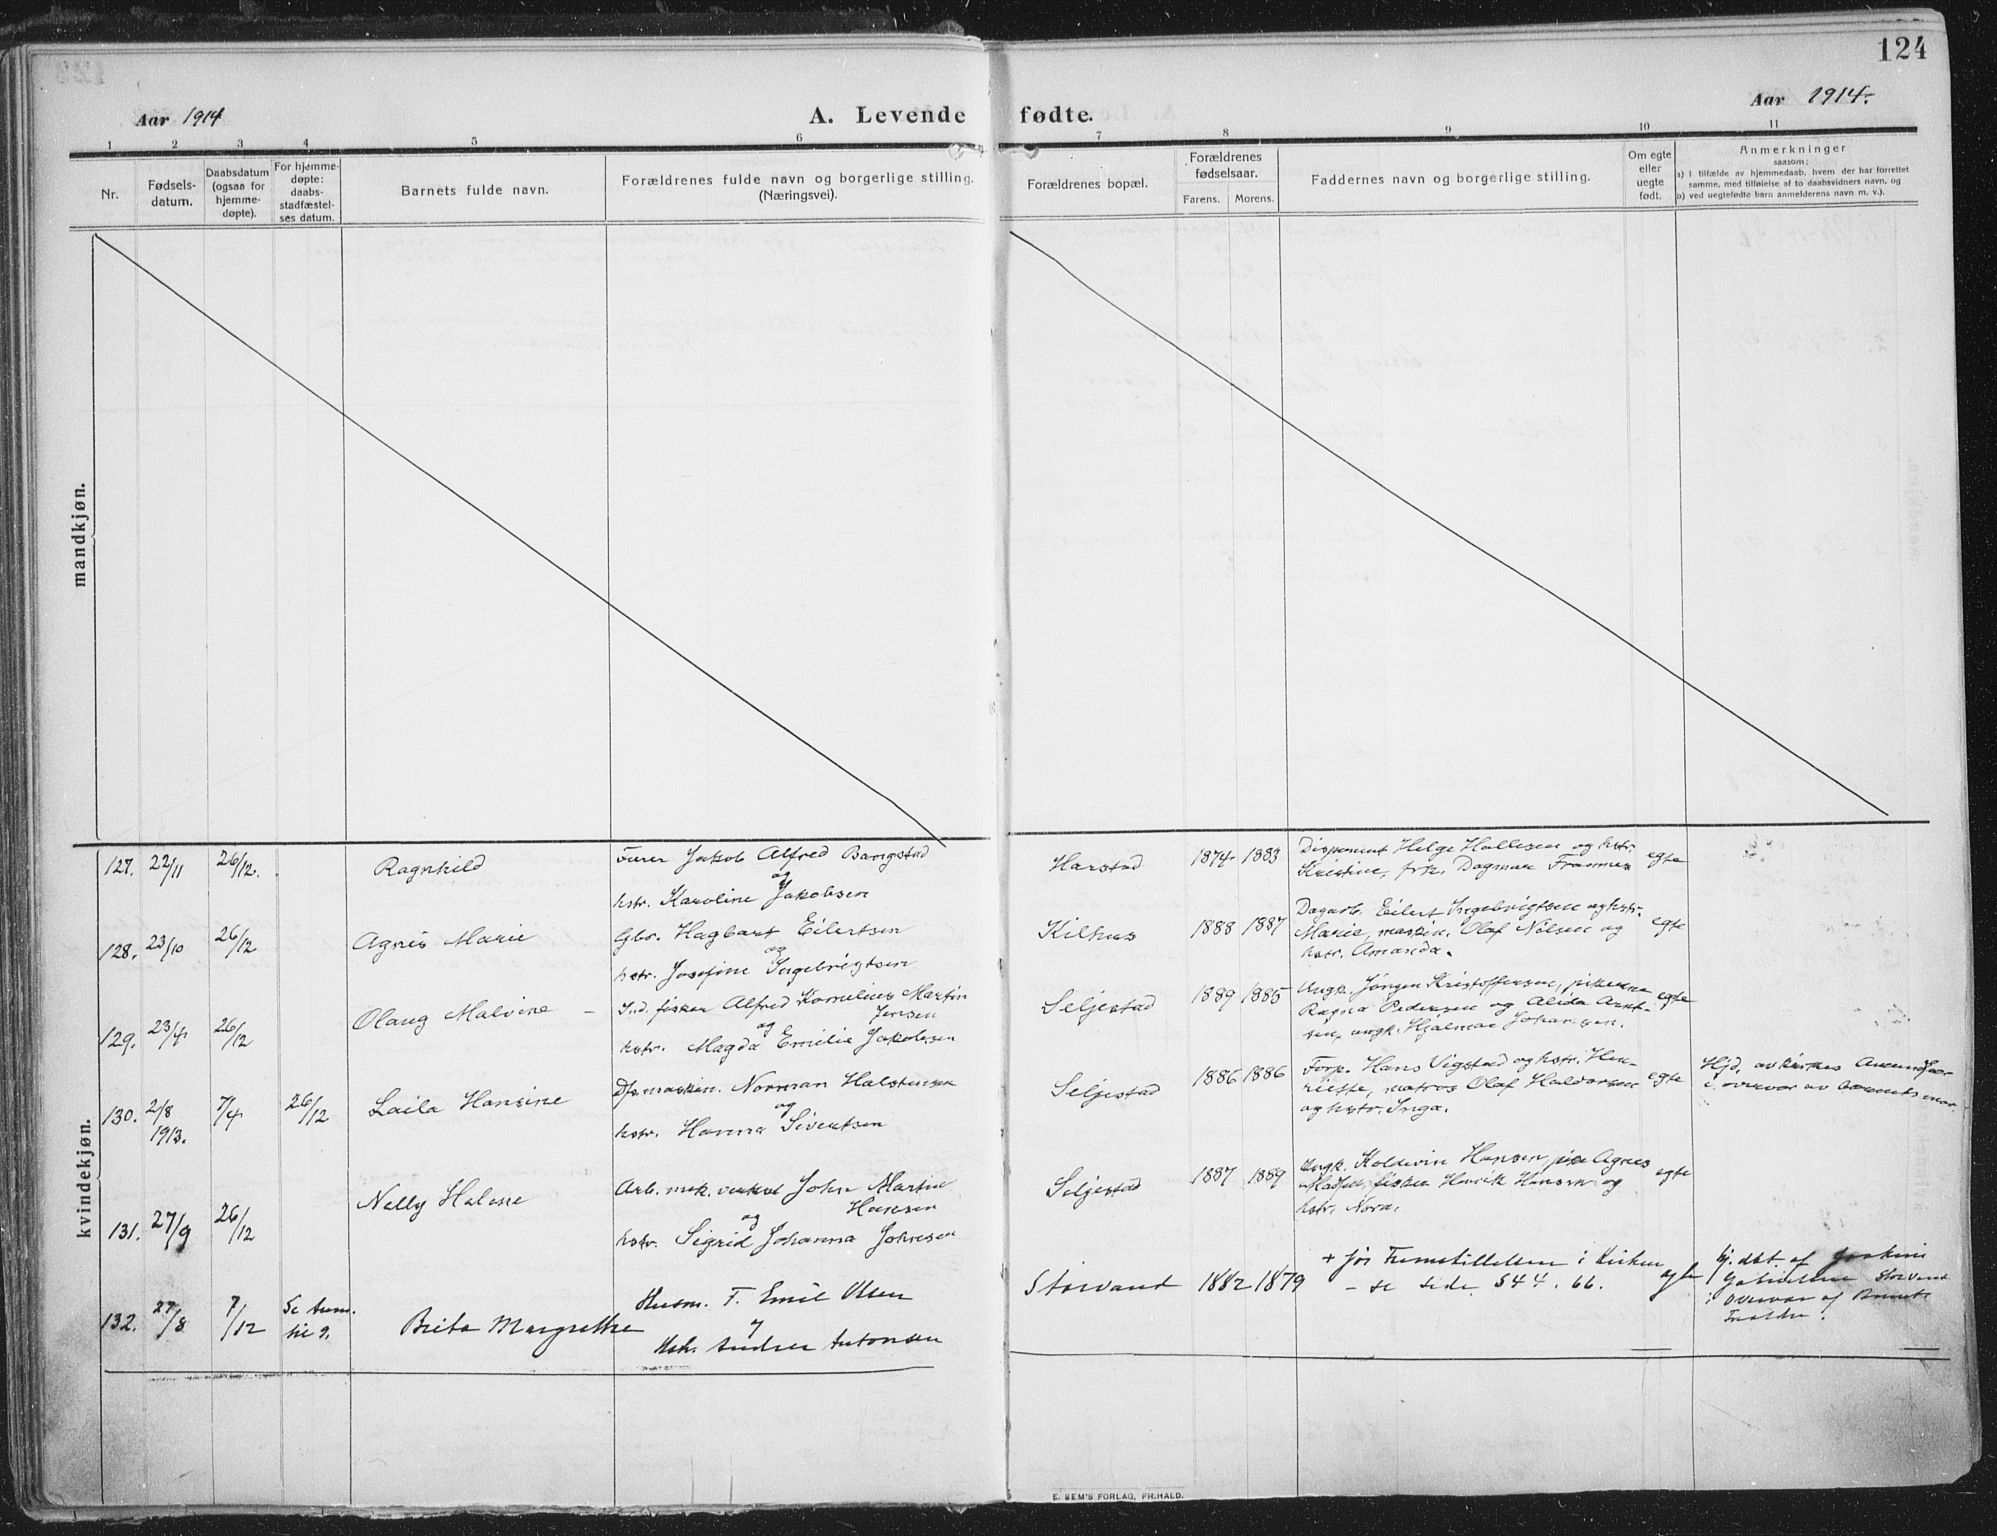 124
Aar 1914
A. Levende fødte.
Aar 1914.
1 2 3 4 5 6 7 8 9 10 11
Nr.
Fødsels-
datum.
Daabsdatum
(ogsaa for
hjemme-
døpte).
For hjemme-
døpte:
daabs-
stadfæstel-
ses datum.
Barnets fulde navn.
Forældrenes fulde navn og borgerlige stilling.
(Næringsvei).
Forældrenes bopæl.
Forældrenes
fødselsaar.
Farens. Morens.
Faddernes navn og borgerlige stilling.
Om egte
eller
uegte
født.
Anmerkninger
saasom:
a) i tilfælde av hjemmedaab, hvem der har forrettet
samme, med tilføielse af to daabsvidners navn, og
b) ved uegtefødte barn anmelderens navn m. v.).
mandkjøn.
kvindekjøn.
127. 22/11 26/12. Ragnhild
Furer Jakob Alfred Bangstad
og
hstr. Karoline Jakobsen
Harstad 1874 1883
Disponent Helge Hallesen og hstr.
Kristine, frk. Dagmar
egte
128. 23/10 26/12 Agnes Marie
Gbr. Hagbart Eilertsen
og
hstr. Josefine Ingebrigtsen
Kilhus 1888 1887
Dagarb. Eilert Ingebrigtsen og hstr.
Marie, maskin. Olaf Nilsen og
hstr. Amanda.
egte
129. 23/4 26/12 Olaug Malvine
Ind. fisker Alfred Kornelius Martin
Jensen
og
hstr. Magda Emilie Jakobsen
Seljestad 1889 1885
Ungk. Jørgen Kristoffersen, pikerne
Ragna Pedersen og Alida Arnt-
sen, ungk. Hjalmar Johansen.
egte
130. 2/8 1913. 7/4 26/12 Laila Hansine
Dpmaskin. Norman Halstensen
og
hstr. Hanna Sivertsen
Seljestad 1886 1886
Forp. Hans Vigstad og hstr. Hen-
riette, matros Olaf Haldorsen
og hstr. Inga.
egte
Hjd. av
i overvær av barnets mor.
131. 27/9 26/12 Nelly Helene
Arb. mek. verkst John Martin
Hansen
og
hstr. Sigrid Johanna Johnsen
Seljestad 1887 1889
Ungk. Koldevin Hansen, pike Agnes
Madsen, fisker Henrik Hansen og
hstr. Nora.
egte
132. 27/8 7/12 Se anm.
til 9.
Brita Margrethe
Husm. F. Emil Olsen
og
Hstr. Andrea Antonsen
Storvand 1882 1879
+ før Fremstillelsen i Kirken
– se side 544. 66.
egte
hj. dbt. af
Storvand
i overvær af Barnets
Forældre.
E. SEM'S FORLAG, FR.HALD.